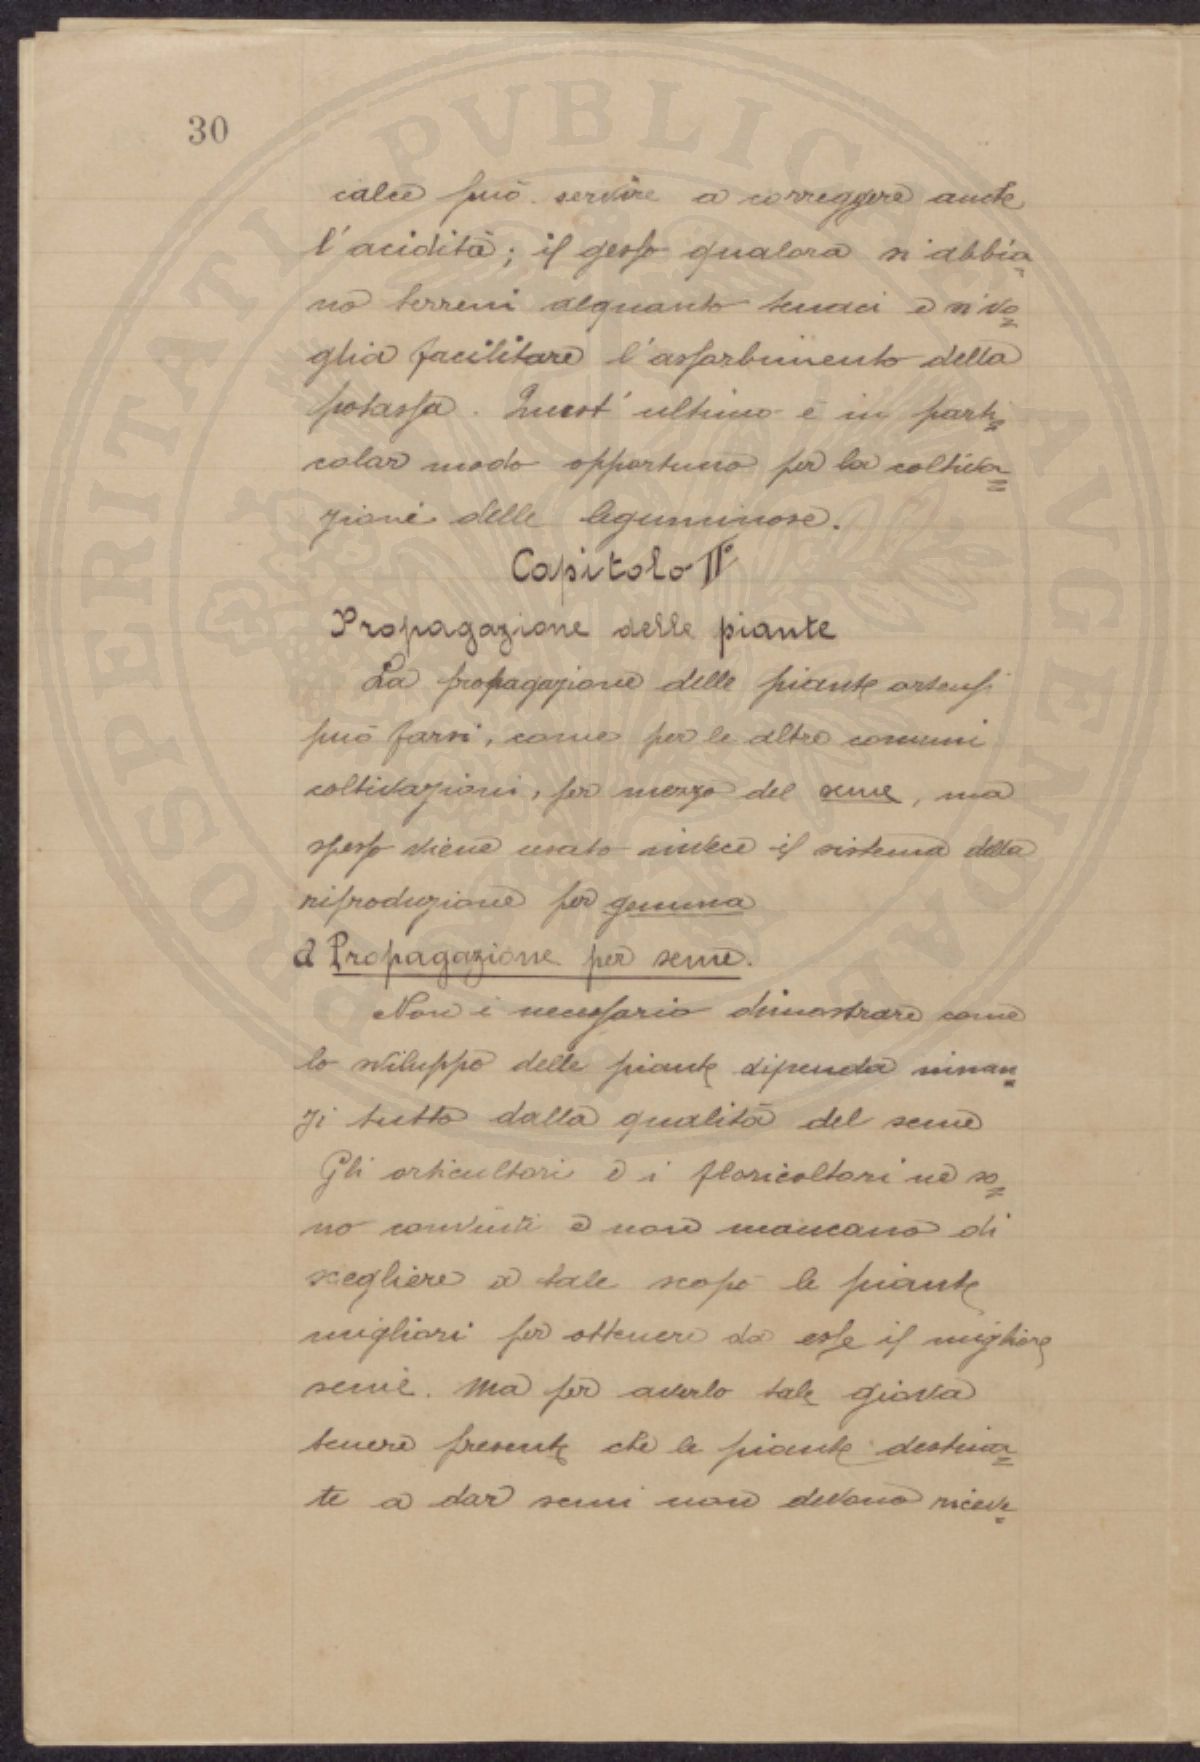 30
calce può servire a correggere anche
l'acidità; il gesso qualora si abbia=
no terreni alquanto tenaci e si vo=
glia facilitare l'assorbimento della
potassa. Quest'ultimo è in parti=
colar modo opportuno per la coltiva=
zione delle leguminose.
Capitolo II°
Propagazione delle piante
La propagazione delle piante ortensi
può farsi, come per le altre comuni
coltivazioni, per mezzo del seme, ma
spesso viene usato invece il sistema della
riproduzione per gemma
a Propagazione per seme.
Non è necessario dimostrare come
lo sviluppo delle piante dipenda innan=
zi tutto dalla qualità del seme
Gli orticultori e i floricoltori ne so=
no convinti e non mancano di
scegliere a tale scopo le piante
migliori per ottenere da esse il migliore
seme. Ma per averlo tale giova
tenere presente che le piante destina=
te a dar semi non devono riceve=
PROSPERITATI PVBLICAE AVGENDAE